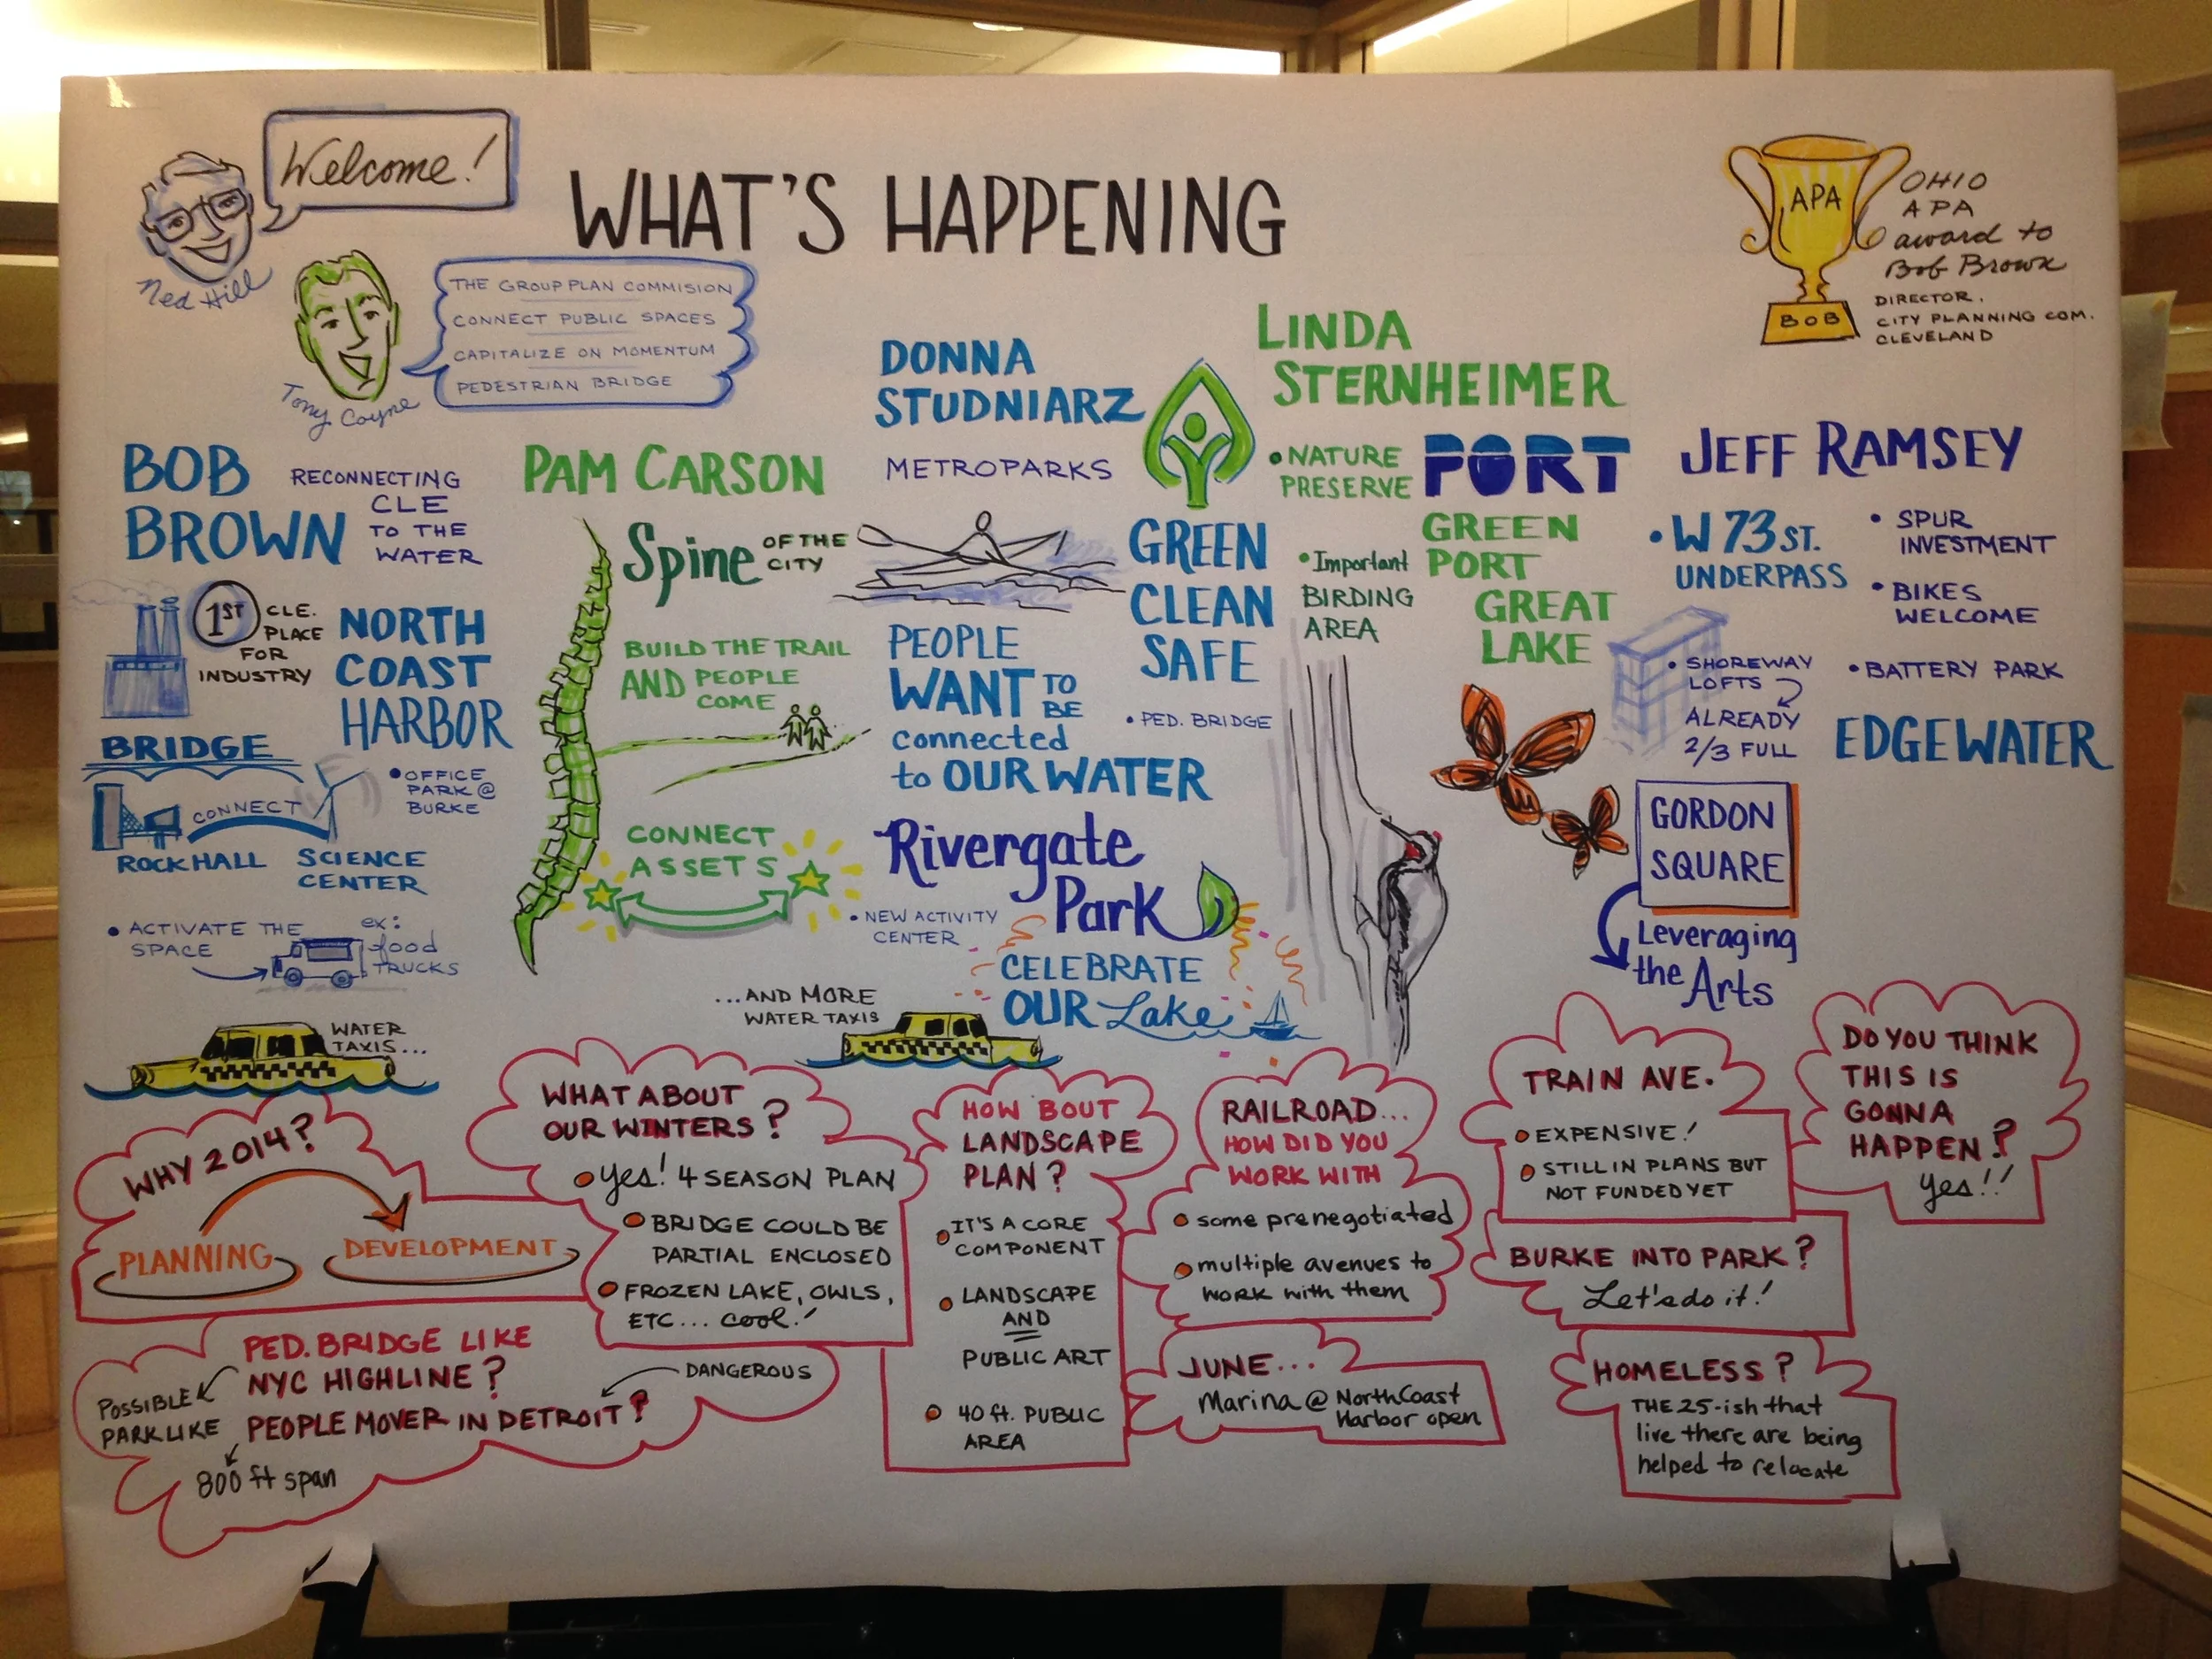 Welcome!
Ned Hill
WHAT'S HAPPENING
APA
BOB
OHIO
APA
award to
Bob Brown
DIRECTOR,
CITY PLANNING COM.
CLEVELAND
THE GROUP PLAN COMMISION
CONNECT PUBLIC SPACES
CAPITALIZE ON MOMENTUM
PEDESTRIAN BRIDGE
Tony Coyne
BOB
BROWN
RECONNECTING
CLE
TO THE
WATER
1ST
CLE.
PLACE
FOR
INDUSTRY
NORTH
COAST
HARBOR
BRIDGE
CONNECT
ROCK HALL
SCIENCE
CENTER
• OFFICE
PARK @
BURKE
• ACTIVATE THE
SPACE
ex:
food
TRUCKS
WATER
TAXIS...
PAM CARSON
Spine OF THE
CITY
BUILD THE TRAIL
AND PEOPLE
COME
CONNECT
ASSETS
DONNA
STUDNIARZ
METROPARKS
GREEN
CLEAN
SAFE
• PED. BRIDGE
PEOPLE
WANT TO
BE
connected
to OUR WATER
Rivergate
Park
• NEW ACTIVITY
CENTER
CELEBRATE
OUR Lake
...AND MORE
WATER TAXIS
LINDA
STERNHEIMER
• NATURE
PRESERVE
PORT
• Important
BIRDING
AREA
GREEN
PORT
GREAT
LAKE
JEFF RAMSEY
• W 73 ST.
UNDERPASS
• SPUR
INVESTMENT
• BIKES
WELCOME
• SHOREWAY
LOFTS
ALREADY
2/3 FULL
• BATTERY PARK
EDGEWATER
GORDON
SQUARE
Leveraging
the Arts
WHY 2014?
PLANNING
DEVELOPMENT
WHAT ABOUT
OUR WINTERS?
yes! 4 SEASON PLAN
BRIDGE COULD BE
PARTIAL ENCLOSED
FROZEN LAKE, OWLS,
ETC... cool!
PED. BRIDGE LIKE
NYC HIGHLINE?
PEOPLE MOVER IN DETROIT?
POSSIBLE
PARKLIKE
800 ft span
DANGEROUS
HOW BOUT
LANDSCAPE
PLAN?
IT'S A CORE
COMPONENT
LANDSCAPE
AND
PUBLIC ART
40 ft. PUBLIC
AREA
RAILROAD...
HOW DID YOU
WORK WITH
some prenegotiated
multiple avenues to
work with them
JUNE...
Marina @ NorthCoast
Harbor open
TRAIN AVE.
EXPENSIVE!
STILL IN PLANS BUT
NOT FUNDED YET
DO YOU THINK
THIS IS
GONNA
HAPPEN?
Yes!!
BURKE INTO PARK?
Let's do it!
HOMELESS?
THE 25-ish that
live there are being
helped to relocate